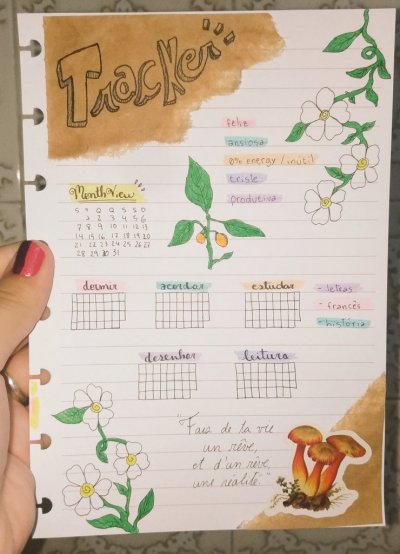 Tracker
feliz
ansiosa
0% energy / inútil
triste
produtiva
Month View
S T Q Q S S D
1 2 3 4 5 6
7 8 9 10 11 12 13
14 15 16 17 18 19 20
21 22 23 24 25 26 27
28 29 30 31
dormir
acordar
estudar
- letras
- francês
- história
desenhar
leitura
"Fais de ta vie
un rêve,
et d'un rêve,
une réalité."